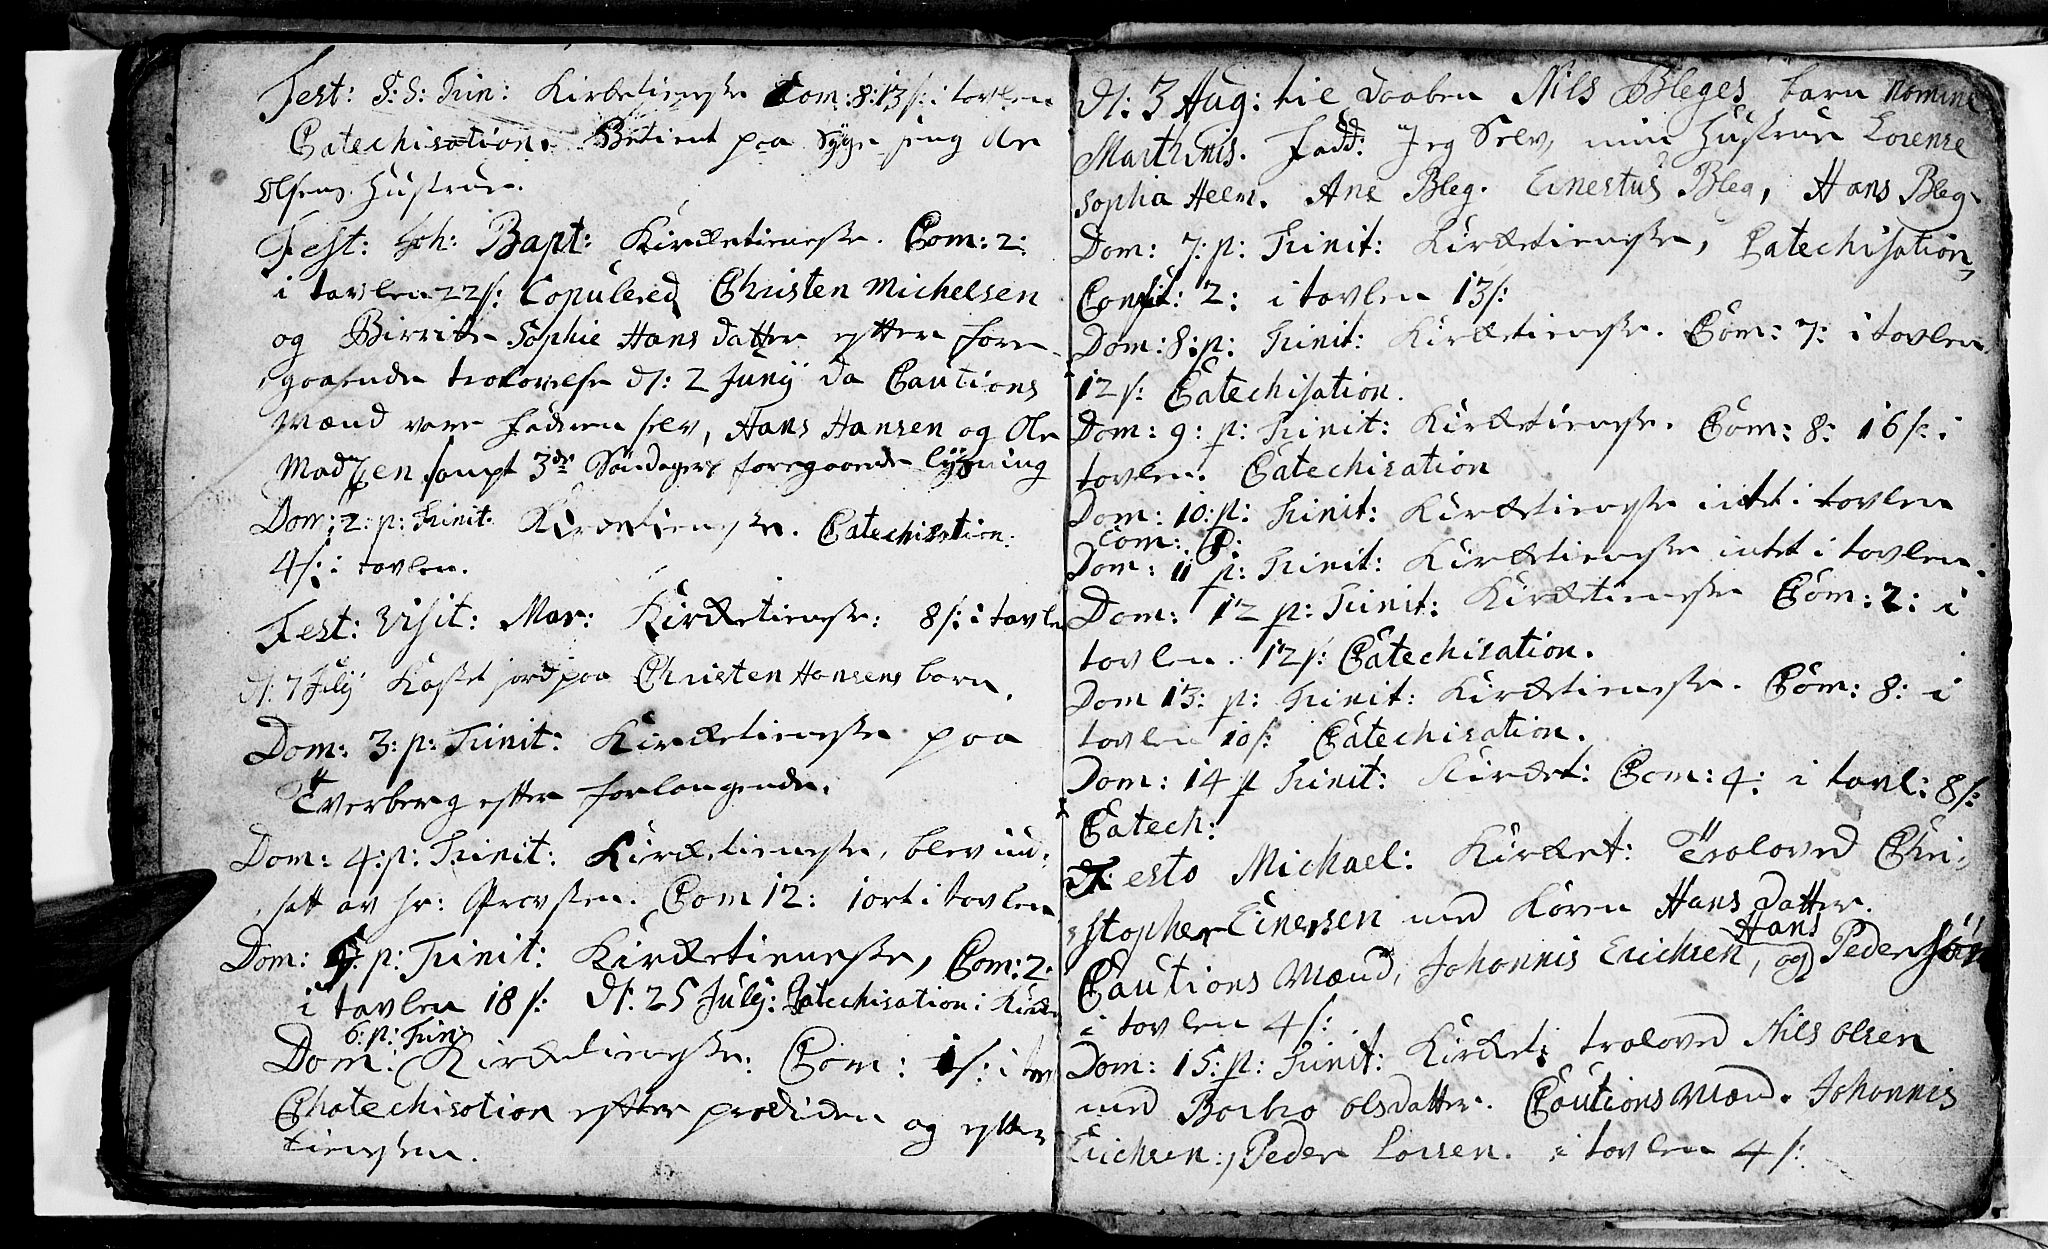 Fest: S: S: Trin: Kircketieneste Com: 8: 13 s: i tavlen
Catechisation. Betient paa Syge seng Ole
Olsens Hustrue.
Fest: Joh: Bapt: Kircketieneste. Com: 2:
i tavlen 22 s: Copulered Christen Michelsen
og Birrite Sophie Hans datter efter fore
gaaende trolovelse d: 2 Junij da Cautions
Mænd vare Faderen selv, Hans Hansen og Ole
Madzen sampt 3de Søndagers foregaaende lysning
Dom: 2: p: Trinit: Kircketieneste. Catechisation:
4 s: i tavlen.
Fest: Visit: Mar: Kircketieneste: 8 s: i tavle
d: 7 July Kastet jord paa Christen Hansens barn.
Dom: 3: p: Trinit: Kircketieneste paa
Tverberg efter forlangende.
Dom: 4: p: Trinit: Kircketieneste, blev ind-
satt av Hr: Provsten. Com 12: 1 ort i tavlen
Dom: 5: p: Trinit: Kircketieneste, Com: 2:
i tavlen 18 s: d: 25 July: Catechisation i Kircke
6: p: Trin:
Dom: Kircketieneste: Com: 1 s: i tav
Chatechisation efter prædiken og efter
tienesten.
d: 3 Aug: til daaben Nils Bleges barn Nomine
Marthinis. Fadd: Jeg Selv, min Hustrue Lorense
Sophia Heem. Ane Bleg. Ernestus Bleg, Hans Bleg.
Dom: 7: p: Trinit: Kircketieneste, Catechisation,
Confit: 2: i tavlen 13 s:
Dom: 8: p: Trinit: Kircketieneste. Com: 7: i tavlen
12 s: Catechisation.
Dom: 9: p: Trinit: Kircketieneste. Com: 8: 16 s: i
tavlen. Catechisation
Dom: 10: p: Trinit: Kircketieneste intet i tavlen
Com:
Dom: 11 p: Trinit: Kircketieneste intet i tavlen.
Dom: 12 p: Trinit: Kircketieneste Com: 2: i
tavlen. 12 s: Catechisation.
Dom 13: p: Trinit: Kircketieneste. Com: 8: i
tavlen 10 s: Catechisation.
Dom: 14 p Trinit: Kircket: Com: 4: i tavl: 8 s:
Catech:
Festo Michael: Kircket: Troloved Chri-
stopher Einersen med Karen Hans datter.
Hans
Cautions Mænd, Johannis Erichsen, og Pedersøn
i tavlen 4 s:
Dom: 15: p: Trinit: Kircket: troloved Nils Olsen
med Barbro Olsdatter. Cautions Mænd. Johannis
Erichsen, Peder Larsen. i tavlen 4 s: